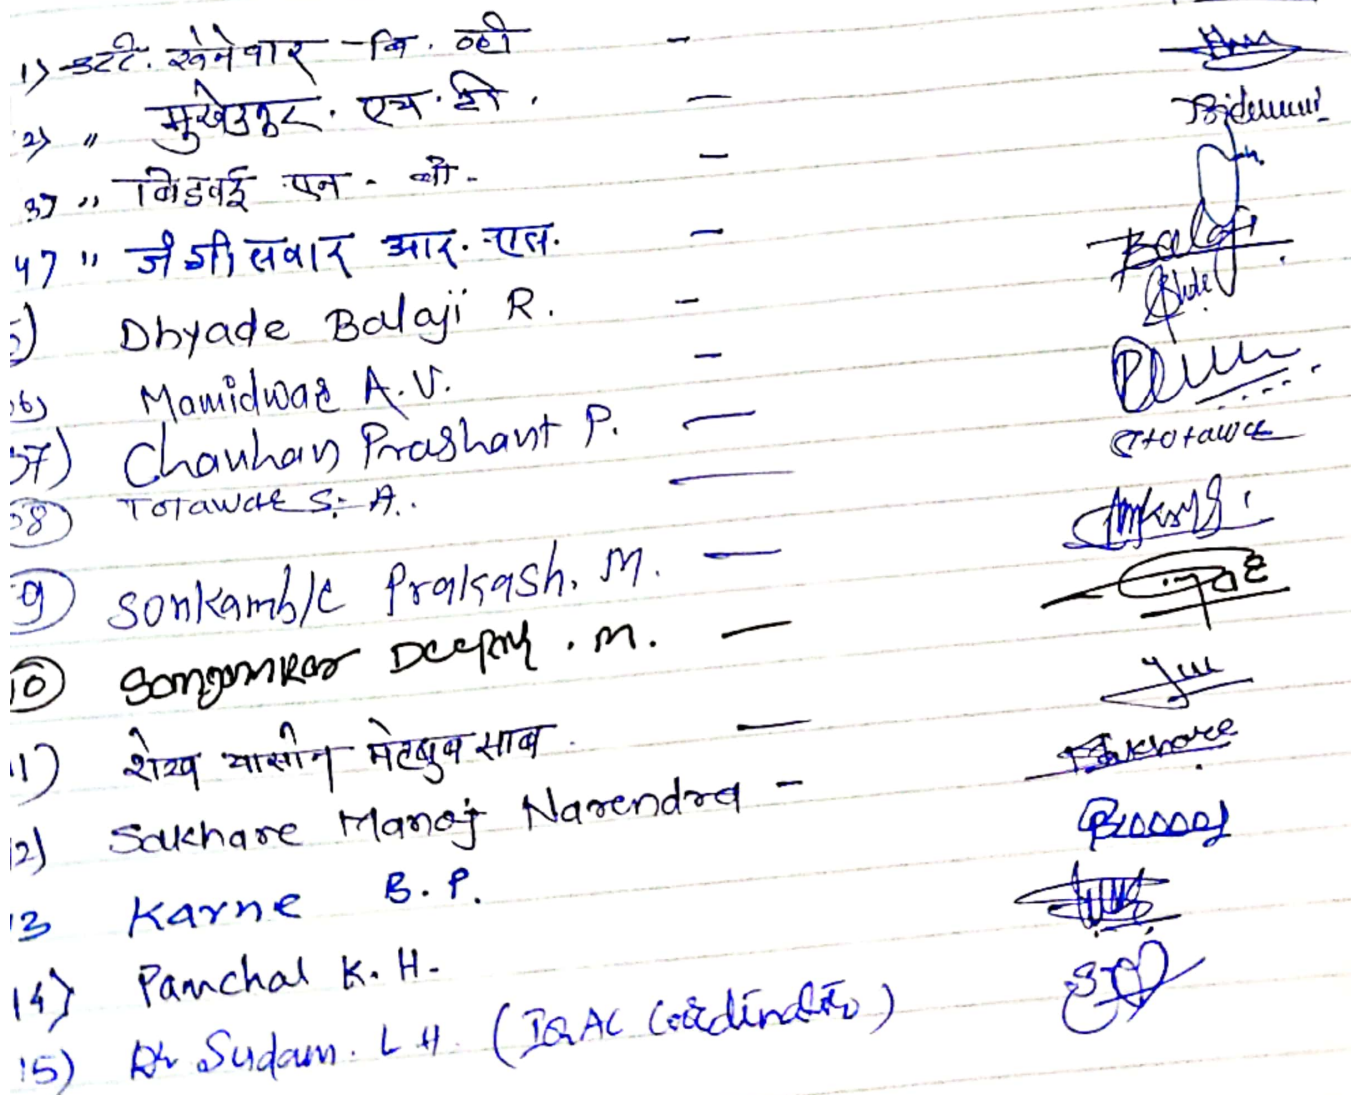 1) डॉ. येनेवार - वि. व्ही -
2) " मुखेडकर. एच. डी. -
3) " बिडवई एन. बी. -
4) " जंगीलवार आर. एल. -
5) Dhyade Balaji R. - Balaji
06) Mamidwar A.V. -
07) Chauhan Prashant P. -
08) Totawar S. A. - Totawar
9) Sonkamble Prakash. M. -
10) Sangamkar Deepak . M. -
11) शेख यासीन मेहबुब साब . -
12) Sakhare Manoj Narendra - Sakhare
13 Karne B. P.
14) Panchal K. H.
15) Dr Sudam. L H. (IQAC Coordinator)